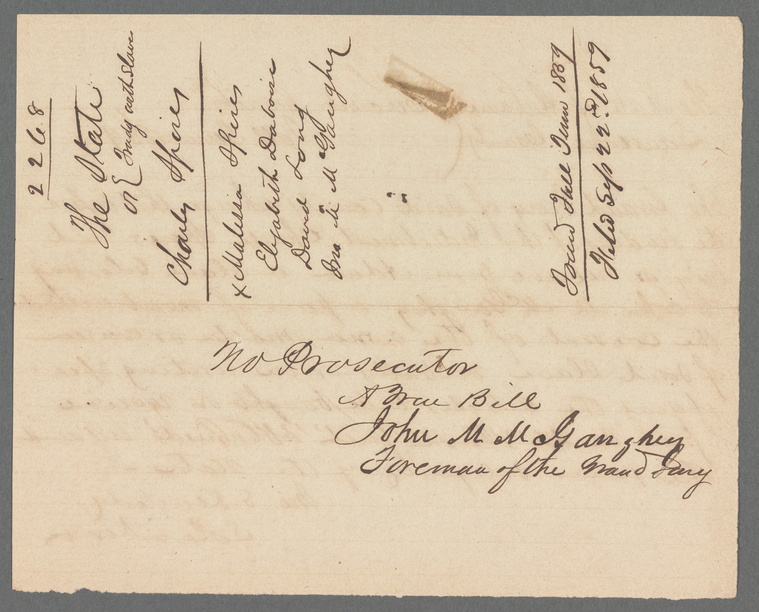 2268
The State
vs { Trady with Slave
Charles Spires
x Malissa Spires
Elizabeth Duboise
David Long
Jno. M. McGaughey
" "
Found Fall Term 1859
Filed Sep 22nd 1859
No Prosecutor
A True Bill
John M McGaughey
Foreman of the Grand Jury